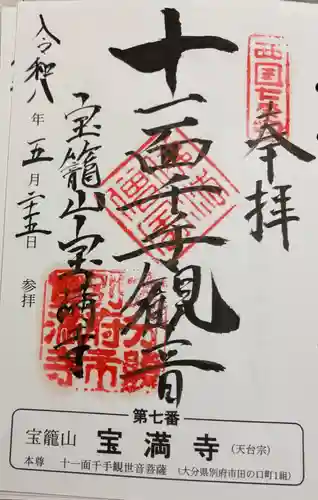 奉拝
十一面千手観音
宝籠山宝満寺
令和八年 五月二十五日 参拝
第七番
宝籠山 宝満寺 (天台宗)
本尊 十一面千手観世音菩薩 (大分県別府市田の口町1組)